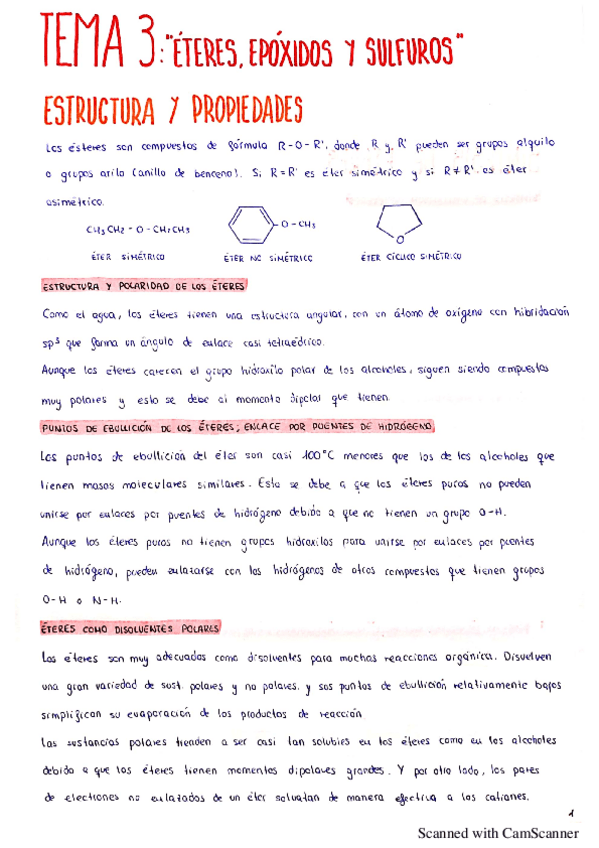 TEMA 3: "ÉTERES, EPÓXIDOS Y SULFUROS"
ESTRUCTURA Y PROPIEDADES
Los ésteres son compuestos de fórmula R-O-R', donde R y R' pueden ser grupos alquilo
o grupos arilo (anillo de benceno). Si R=R' es éter simétrico y si R≠R' es éter
asimétrico.
CH3CH2-O-CH2CH3
O-CH3
O
ÉTER SIMÉTRICO
ÉTER NO SIMÉTRICO
ÉTER CÍCLICO SIMÉTRICO
ESTRUCTURA Y POLARIDAD DE LOS ÉTERES
Como el agua, los éteres tienen una estructura angular, con un átomo de oxígeno con hibridación
sp3 que forma un ángulo de enlace casi tetraédrico.
Aunque los éteres carecen el grupo hidroxilo polar de los alcoholes, siguen siendo compuestos
muy polares y esto se debe al momento dipolar que tienen.
PUNTOS DE EBULLICIÓN DE LOS ÉTERES; ENLACE POR PUENTES DE HIDRÓGENO
Los puntos de ebullición del éter son casi 100°C menores que los de los alcoholes que
tienen masas moleculares similares. Esto se debe a que los éteres puros no pueden
unirse por enlaces por puentes de hidrógeno debido a que no tienen un grupo O-H.
Aunque los éteres puros no tienen grupos hidroxilos para unirse por enlaces por puentes
de hidrógeno, pueden enlazarse con los hidrógenos de otros compuestos que tienen grupos
O-H o N-H.
ÉTERES COMO DISOLVENTES POLARES
Los éteres son muy adecuados como disolventes para muchas reacciones orgánica. Disuelven
una gran variedad de sust. polares y no polares, y sus puntos de ebullición relativamente bajos
simplifican su evaporación de los productos de reacción
Las sustancias polares tienden a ser casi tan solubles en los éteres como en los alcoholes
debido a que los éteres tienen momentos dipolares grandes. Y por otro lado, los pares
de electrones no enlazados de un éter solvatan de manera efectiva a los cationes.
1
Scanned with CamScanner